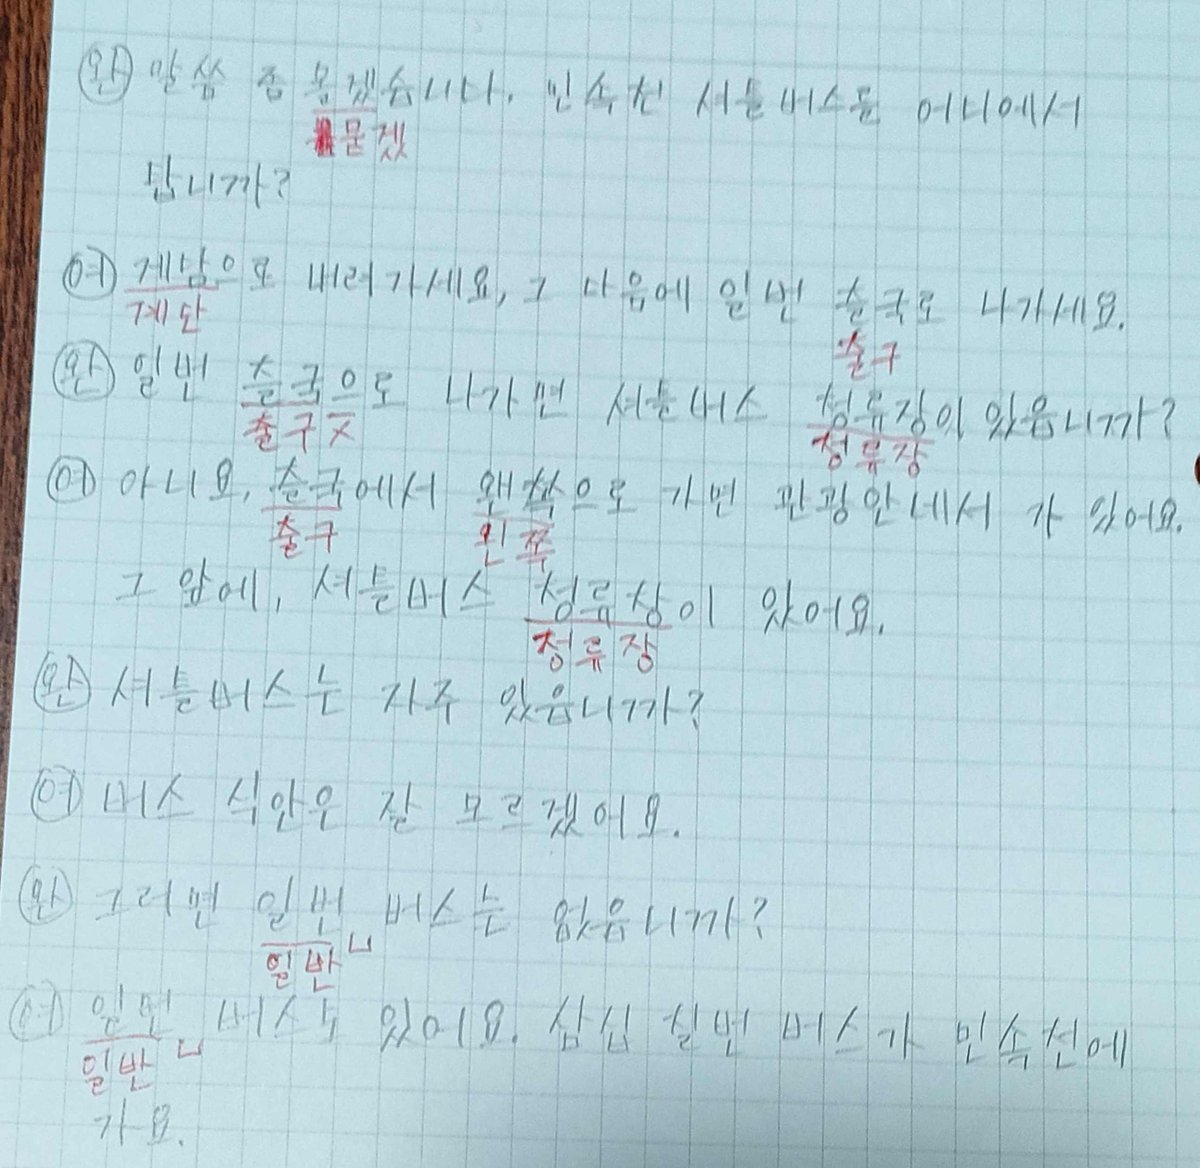 완 말씀 좀 몯겠습니다. 민속천 셔틀버스를 어디에서
묻겠
탑니까?
여 게남으로 내려가세요, 그 다음에 일번 출국로 나가세요.
계단
출구
완 일번 출국으로 나가면 셔틀버스 청류장이 있읍니까?
출구 X
정류장
여 아니요, 출국에서 왠쪽으로 가면 관광안네서 가 있어요.
출구
왼쪽
그 앞에, 셔틀버스 청류장이 있어요.
정류장
완 셔틀버스는 자주 있읍니까?
여 버스 식안은 잘 모르겠어요.
완 그러면 일번 버스는 없읍니까?
일반
여 일번 버스도 있어요. 삼십 칠번 버스가 민속천에
일반
가요.